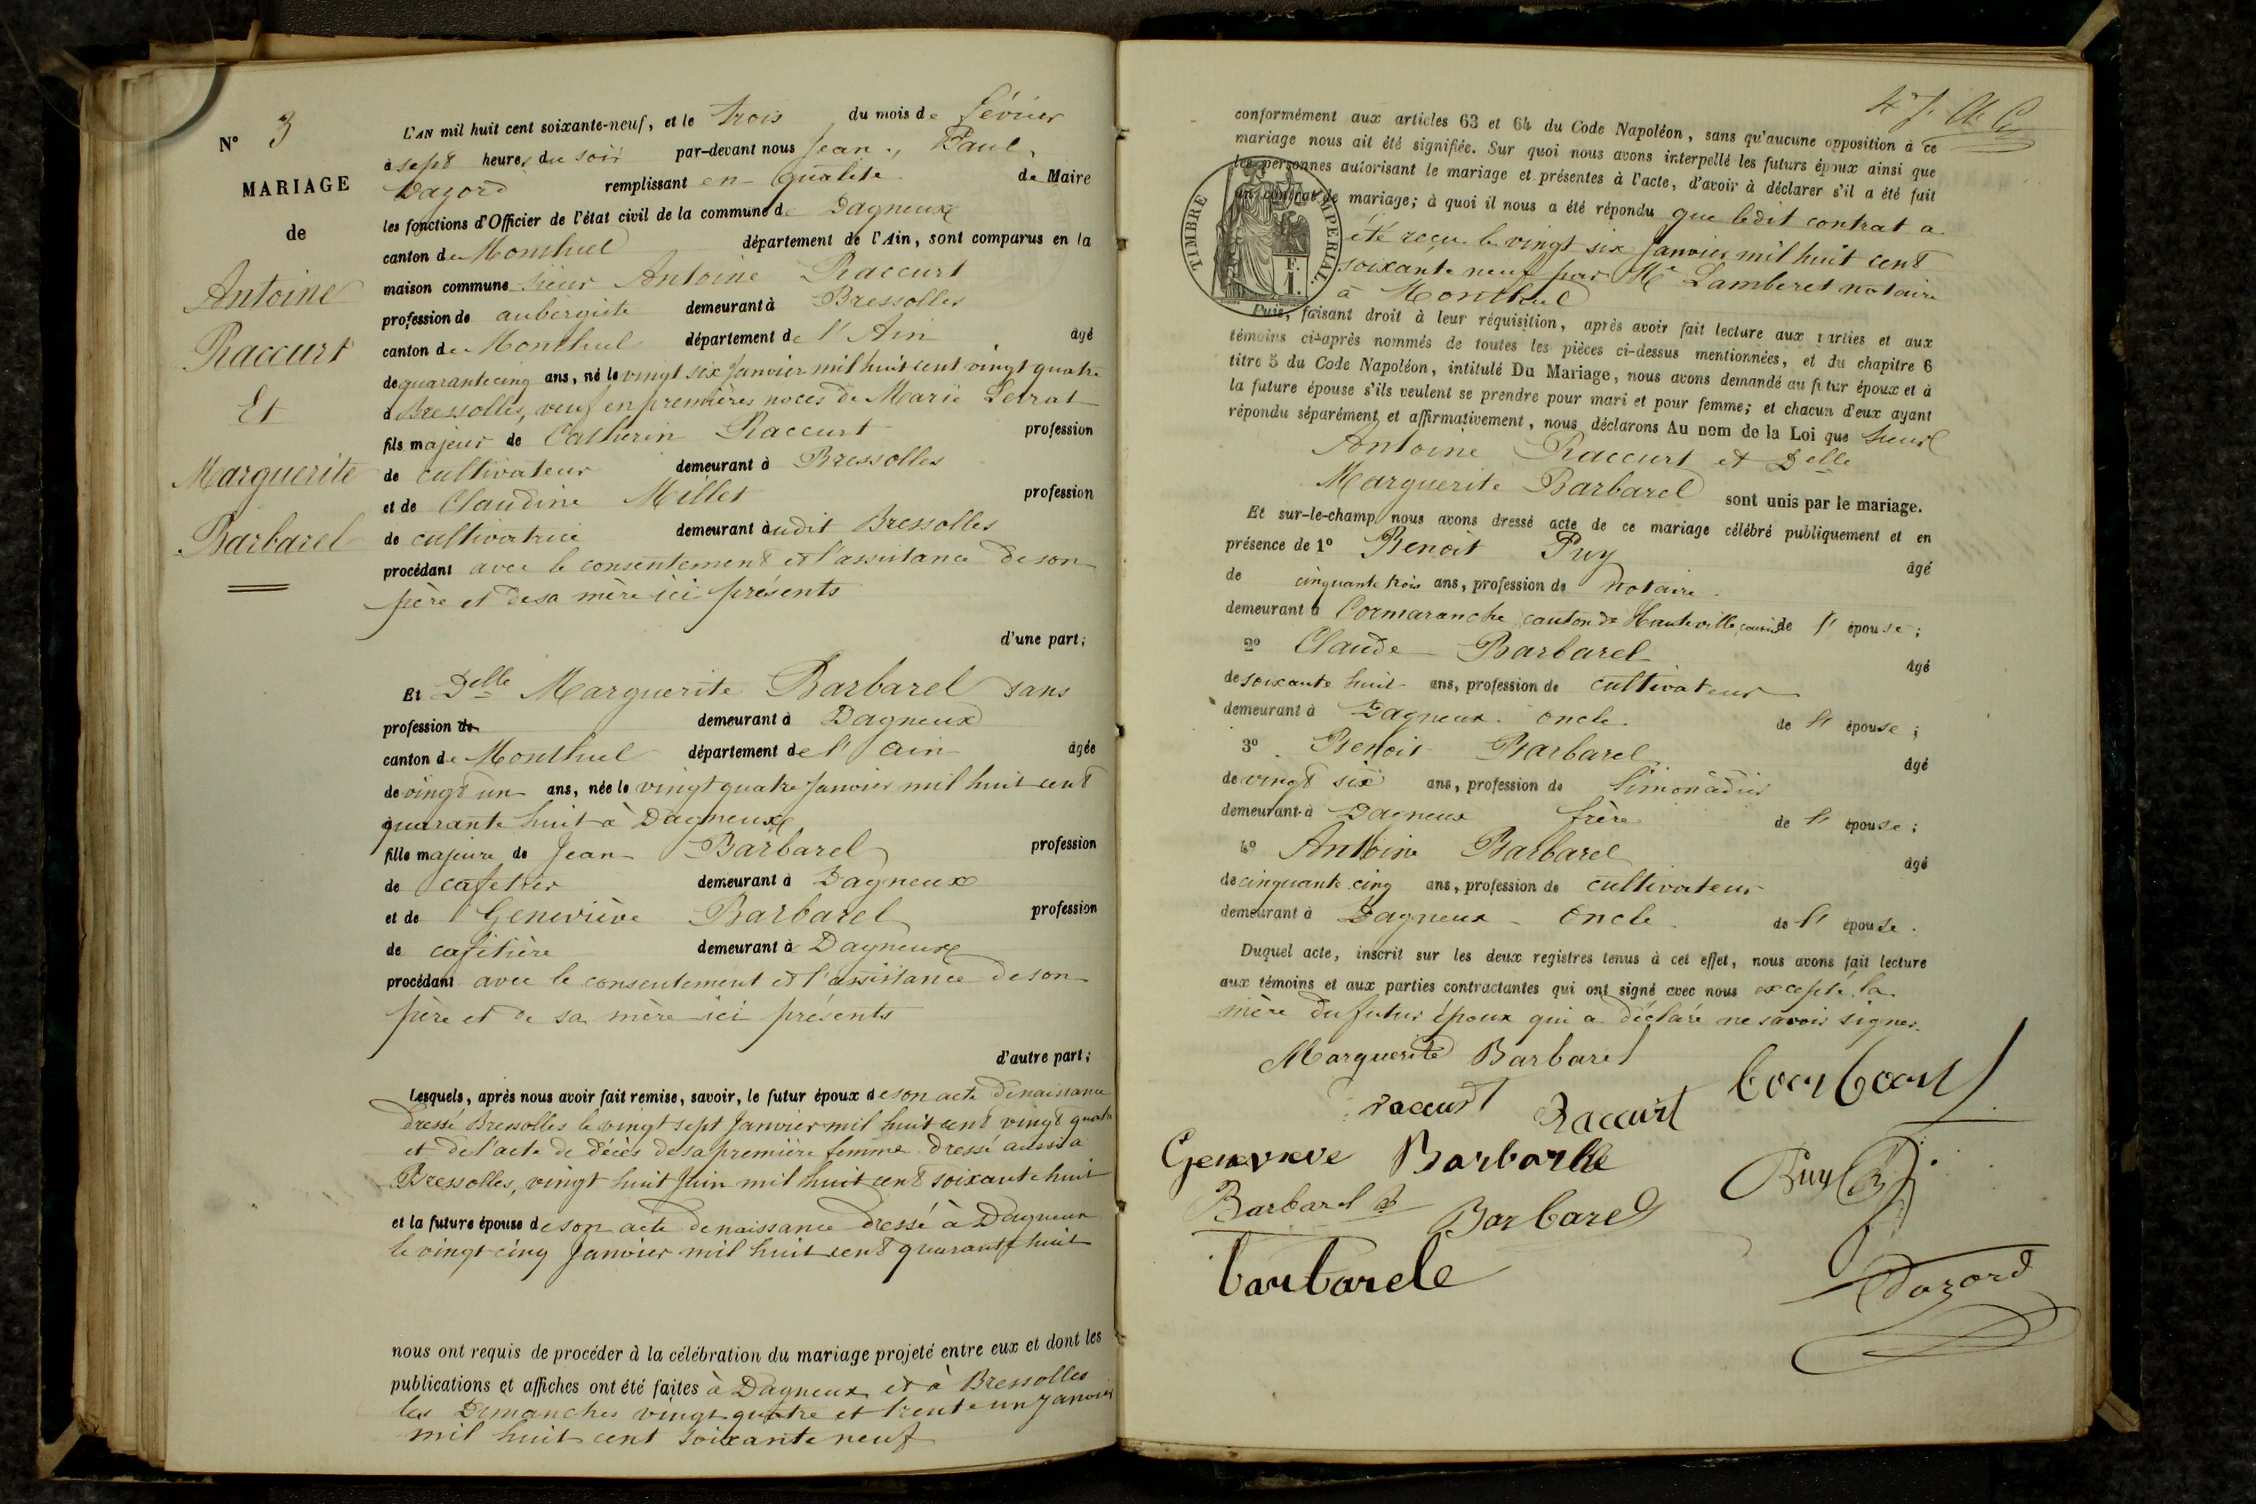 N° 3
MARIAGE
de
Antoine
Raccurt
Et
Marguerite
Barbarel
L'AN mil huit cent soixante-neuf, et le trois du mois de février
à sept heures du soir par-devant nous Jean, Paul,
Dazord remplissant en qualité de Maire
les fonctions d'Officier de l'état civil de la commune de Dagneux
canton de Montluel département de l'Ain, sont comparus en la
maison commune sieur Antoine Raccurt
profession de aubergiste demeurant à Bressolles
canton de Montluel département de l'Ain âgé
de quarante cinq ans, né le vingt six Janvier mil huit cent vingt quatre
à Bressolles, veuf en premières noces de Marie
fils majeur de Catherin Raccurt profession
de cultivateur demeurant à Bressolles
et de Claudine Millet profession
de cultivatrice demeurant audit Bressolles
procédant avec le consentement et l'assistance de son
père et de sa mère ici présents
d'une part;
Et Delle Marguerite Barbarel sans
profession de demeurant à Dagneux
canton de Montluel département de l'Ain âgée
de vingt un ans, née le vingt quatre Janvier mil huit cent
quarante huit à Dagneux
fille majeure de Jean Barbarel profession
de cafetier demeurant à Dagneux
et de Geneviève Barbarel profession
de cafetière demeurant à Dagneux
procédant avec le consentement et l'assistance de son
père et de sa mère ici présents
d'autre part;
Lesquels, après nous avoir fait remise, savoir, le futur époux de son acte de naissance
dressé Bressolles le vingt sept Janvier mil huit cent vingt quatre
et de l'acte de décès de sa première femme dressé aussi à
Bressolles, vingt huit Juin mil huit cent soixante huit
et la future épouse de son acte de naissance dressé à Dagneux
le vingt cinq Janvier mil huit cent quarante huit
nous ont requis de procéder à la célébration du mariage projeté entre eux et dont les
publications et affiches ont été faites à Dagneux et à Bressolles
les Dimanches vingt quatre et trente un Janvier
mil huit cent soixante neuf
conformément aux articles 63 et 64 du Code Napoléon, sans qu'aucune opposition à ce
mariage nous ait été signifiée. Sur quoi nous avons interpellé les futurs époux ainsi que
les personnes autorisant le mariage et présentes à l'acte, d'avoir à déclarer s'il a été fait
un contrat de mariage; à quoi il nous a été répondu que ledit contrat a
été reçu le vingt six Janvier mil huit cent
soixante neuf par Me Lamberet notaire
à Montluel
TIMBRE IMPERIAL.
F.
1.
Puis, faisant droit à leur réquisition, après avoir fait lecture aux parties et aux
témoins ci-après nommés de toutes les pièces ci-dessus mentionnées, et du chapitre 6
titre 5 du Code Napoléon, intitulé Du Mariage, nous avons demandé au futur époux et à
la future épouse s'ils veulent se prendre pour mari et pour femme; et chacun d'eux ayant
répondu séparément et affirmativement, nous déclarons Au nom de la Loi que sieur
Antoine Raccurt et Delle
Marguerite Barbarel sont unis par le mariage.
Et sur-le-champ nous avons dressé acte de ce mariage célébré publiquement et en
présence de 1° Benoit Puy âgé
de cinquante trois ans, profession de notaire
demeurant à Cormaranche canton de Hauteville, cousin de l'épouse;
2° Claude Barbarel âgé
de soixante huit ans, profession de cultivateur
demeurant à Dagneux oncle de l'épouse;
3° Benoit Barbarel âgé
de vingt six ans, profession de limonadier
demeurant à Dagneux frère de l'épouse;
4° Antoine Barbarel âgé
de cinquante cinq ans, profession de cultivateur
demeurant à Dagneux oncle de l'épouse.
Duquel acte, inscrit sur les deux registres tenus à cet effet, nous avons fait lecture
aux témoins et aux parties contractantes qui ont signé avec nous excepté la
mère du futur époux qui a déclaré ne savoir signer.
Marguerite Barbarel
raccurt Raccurt
Genevieve Barbarelle Puy
Barbarel B Barbarel
barbarele Dazord